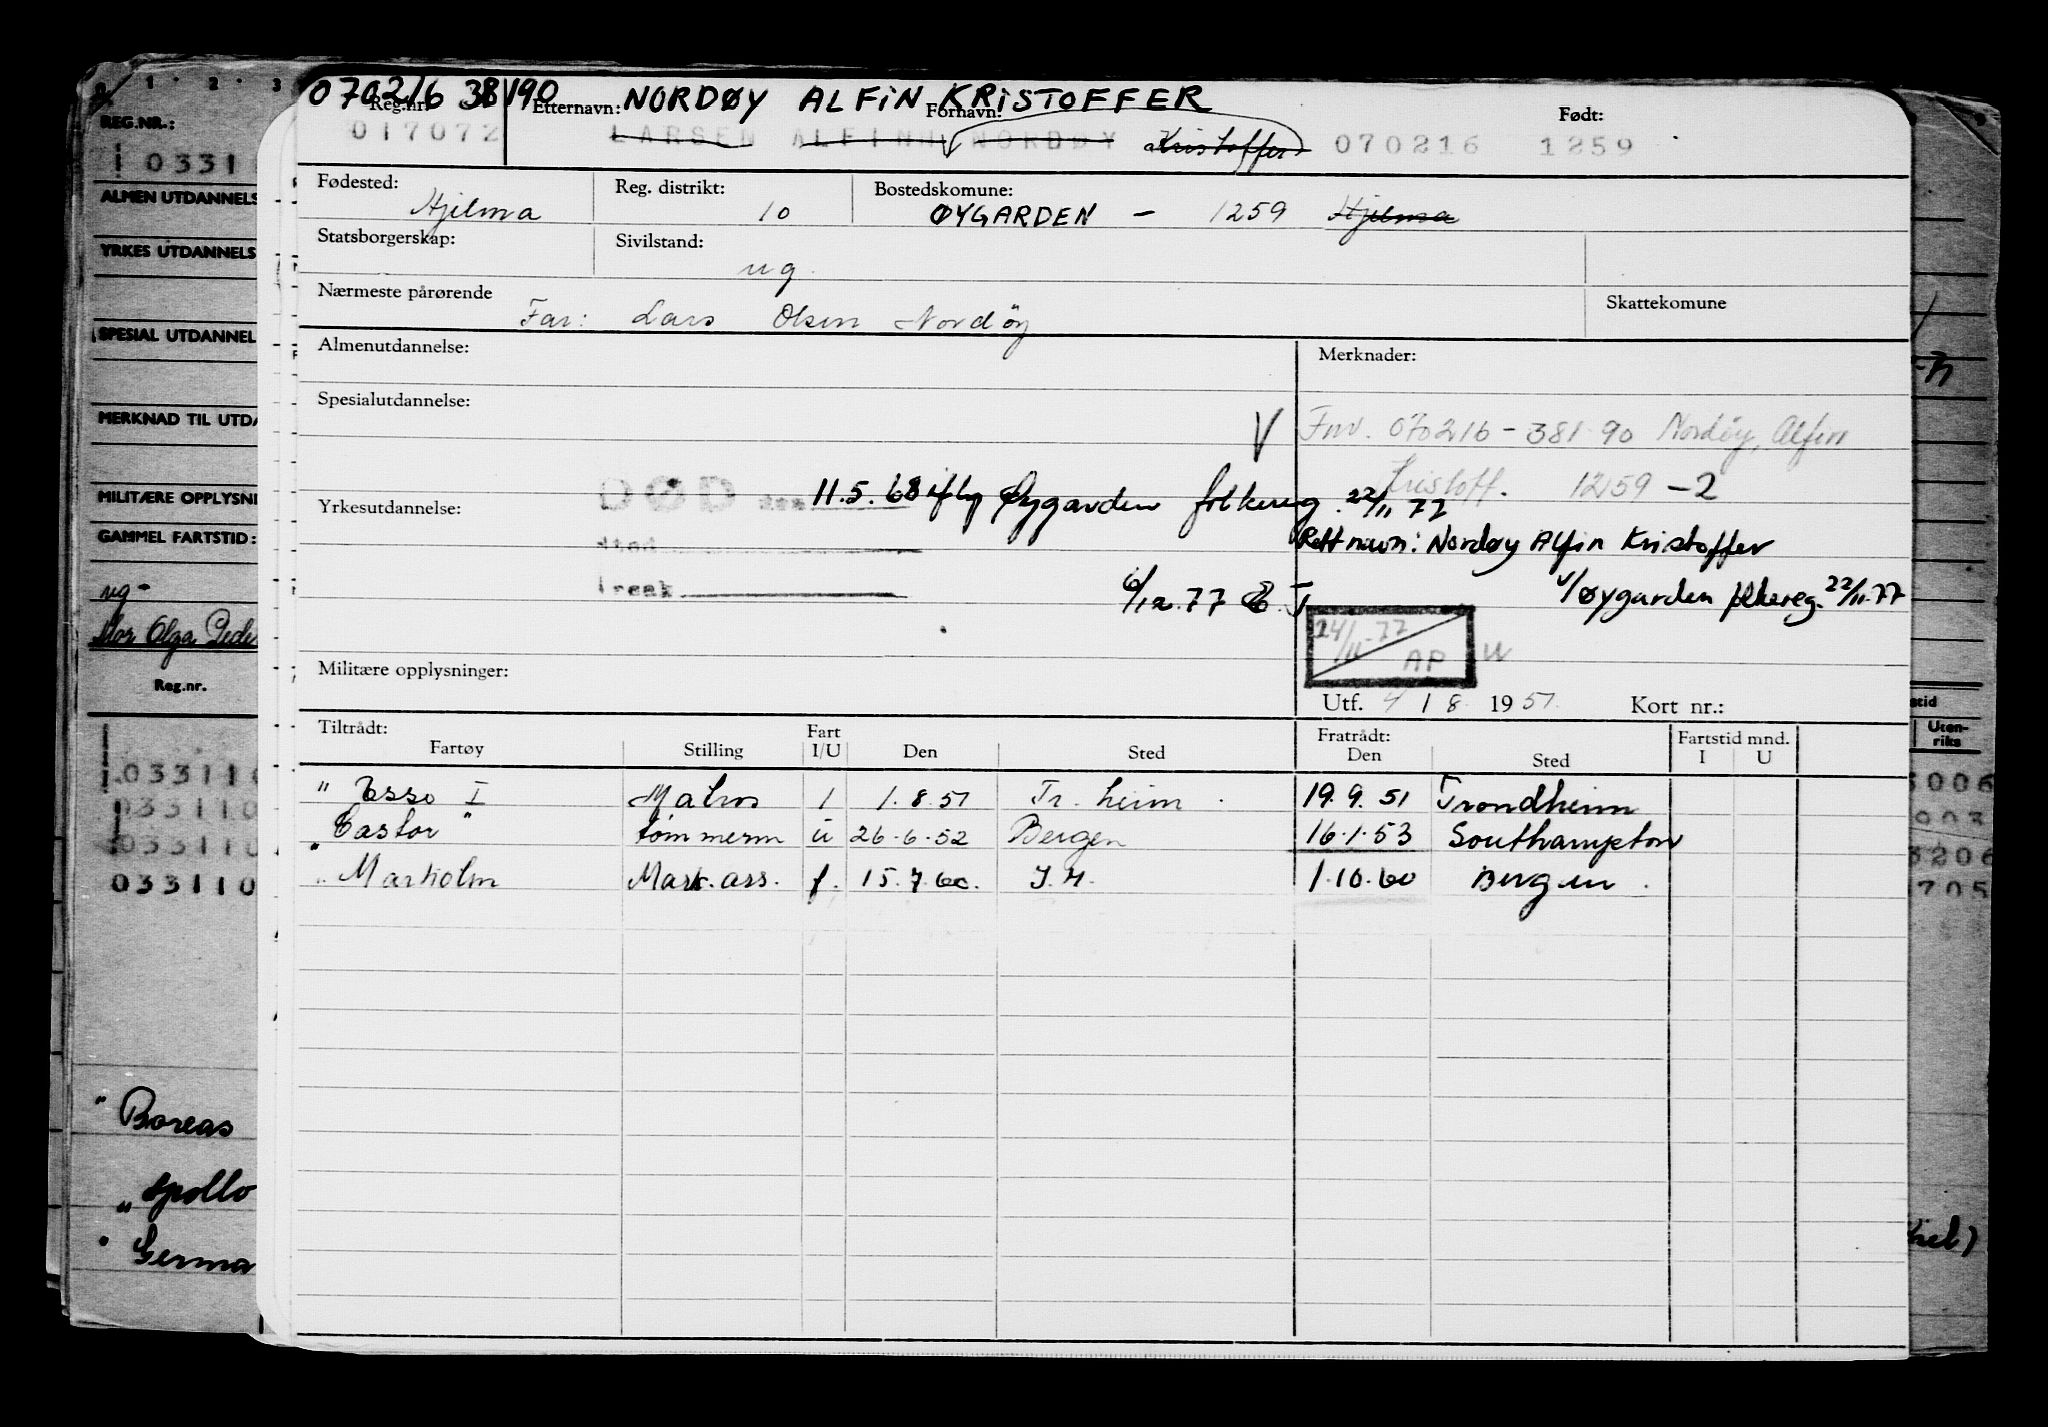 070216 38190 NORDØY ALFIN KRISTOFFER
Reg.nr. Etternavn: Fornavn: Født:
017072 LARSEN ALFINN NORDØY Kristoffer 070216 1259
Fødested: Hjelma Reg. distrikt: 10 Bostedskomune: ØYGARDEN - 1259 Hjelma
Statsborgerskap: Sivilstand: ug.
Nærmeste pårørende Far: Lars Olsen Nordöy Skattekomune
Almenutdannelse: Merknader:
Spesialutdannelse: V Fnr. 070216-381 90 Nordöy, Alfin
Kristoff. 1259-2
DØD den 11.5.68 iflg Øygarden folkereg. 22/11 77
Yrkesutdannelse:
sted Rett navn: Nordøy Alfin Kristoffer
årsak 6/12.77 v/Øygarden folkereg. 22/11.77
24/11-77
AP
Militære opplysninger:
Utf. 4 / 8 1951. Kort nr.:
Tiltrådt: Fart Fratrådt: Fartstid mnd.
Fartøy Stilling I/U Den Sted Den Sted I U
" Esso I Matros I 1.8.51 Tr. heim. 19.9.51 Trondheim
"Castor" tømmerm u 26.6.52 Bergen 16.1.53 Southampton
" Marholm Mask.ass. f. 15.7.60. J.M. 1.10.60 Bergen.
REG.NR.:
03311
ALMEN UTDANNELS
YRKES UTDANNELS
SPESIAL UTDANNEL
MERKNAD TIL UTDA
MILITÆRE OPPLYSNI
GAMMEL FARTSTID:
ug-
Mor Olga Pede
Reg.nr.
033110
033110
033110
033110
" Boreas
" Apollo
" Germa
Uten-
riks
3006
003
3206
705
Kiel)